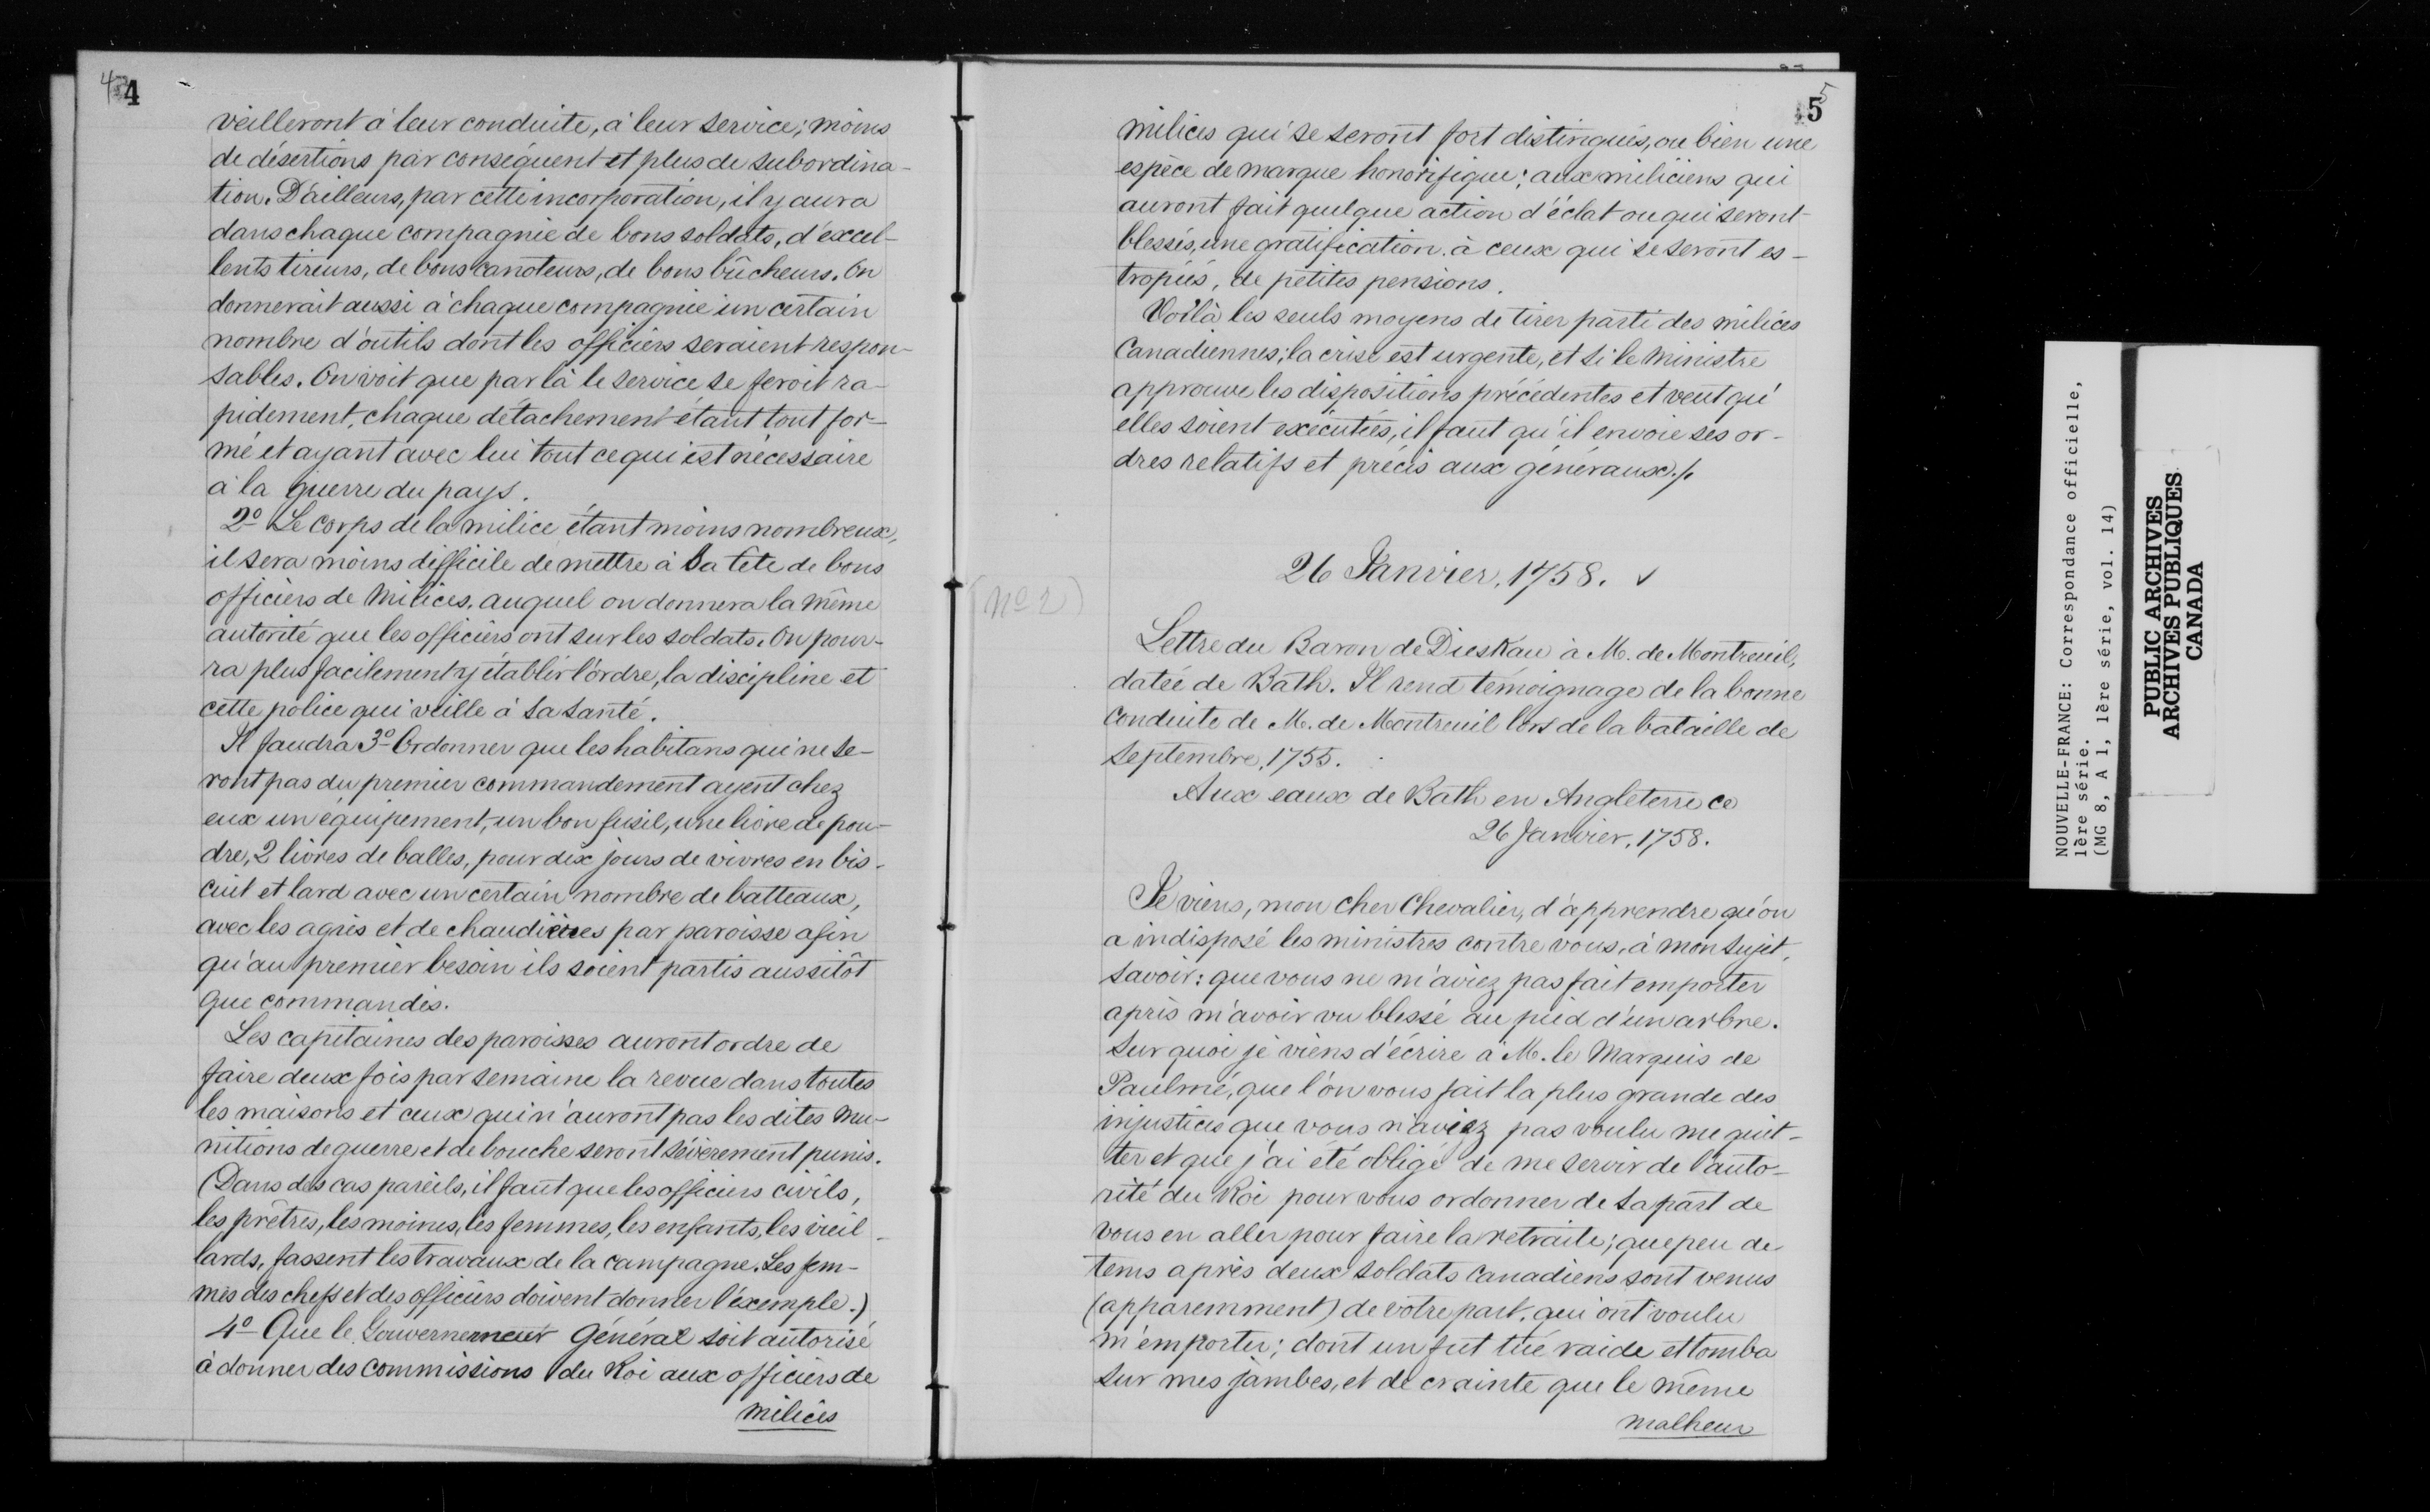 4 4
veilleront à leur conduite, à leur service; moins
de désertions par conséquent et plus de subordina-
tion. D'ailleurs, par cette incorporation, il y aura
dans chaque compagnie de bons soldats, d'excel-
lents tireurs, de bons canoteurs, de bons bûcheurs. On
donnerait aussi à chaque compagnie un certain
nombre d'outils dont les officiers seraient respon-
sables. On voit que par là le service se feroit ra-
pidement, chaque détachement étant tout for-
mé et ayant avec lui tout ce qui est nécessaire
à la guerre du pays.
2º Le corps de la milice étant moins nombreux,
il sera moins difficile de mettre à sa tête de bons
officiers de Milices, auquel on donnera la même
autorité que les officiers ont sur les soldats. On pour-
ra plus facilement y établir l'ordre, la discipline et
cette police qui veille à sa santé.
Il faudra 3º Ordonner que les habitans qui ne se-
ront pas du premier commandement ayent chez
eux un équipement, un bon fusil, une livre de pou-
dre, 2 livres de balles, pour dix jours de vivres en bis-
cuit et lard avec un certain nombre de batteaux,
avec les agrès et de chaudières par paroisse afin
qu'au premier besoin ils soient partis aussitôt
que commandés.
Les capitaines des paroisses auront ordre de
faire deux fois par semaine la revue dans toutes
les maisons et ceux qui n'auront pas les dites mu-
nitions de guerre et de bouche seront sévèrement punis.
(Dans des cas pareils, il faut que les officiers civils,
les prêtres, les moines, les femmes, les enfants, les vieil-
lards, fassent les travaux de la campagne. Les fem-
mes des chefs et des officiers doivent donner l'exemple.)
4º Que le Gouvernemeur Général soit autorisé
à donner des commissions du Roi aux officiers de
milices
5 5
milices qui se seront fort distingués, ou bien une
espèce de marque honorifique; aux miliciens qui
auront fait quelque action d'éclat ou qui seront
blessés, une gratification. à ceux qui se seront es-
tropiés, de petites pensions.
Voilà les seuls moyens de tirer parti des milices
Canadiennes; la crise est urgente, et si le Ministre
approuve les dispositions précédentes et veut qu'
elles soient exécutées, il faut qu'il envoie ses or-
dres relatifs et précis aux généraux./.
26 Janvier, 1758. v
(No 2)
Lettre du Baron de Dieskau à M. de Montreuil,
datée de Bath. Il rend témoignage de la bonne
conduite de M. de Montreuil lors de la bataille de
septembre, 1755.
Aux eaux de Bath en Angleterre ce
26 Janvier, 1758.
Je viens, mon cher Chevalier, d'apprendre qu'on
a indisposé les ministres contre vous, à mon sujet,
savoir: que vous ne m'aviez pas fait emporter
après m'avoir vu blessé au pied d'un arbre.
Sur quoi je viens d'écrire à M. le Marquis de
Paulmé, que l'on vous fait la plus grande des
injustices que vous n'aviez pas voulu me quit-
ter et que j'ai été obligé de me servir de l'auto-
rité du Roi pour vous ordonner de sa part de
vous en aller pour faire la retraite; que peu de
tems après deux soldats canadiens sont venus
(apparemment) de votre part, qui ont voulu
m'emporter; dont un fut tué raide et tomba
sur mes jambes, et de crainte que le même
malheur
NOUVELLE-FRANCE: Correspondance officielle,
1ère série.
(MG 8, A 1, 1ère série, vol. 14)
PUBLIC ARCHIVES
ARCHIVES PUBLIQUES
CANADA